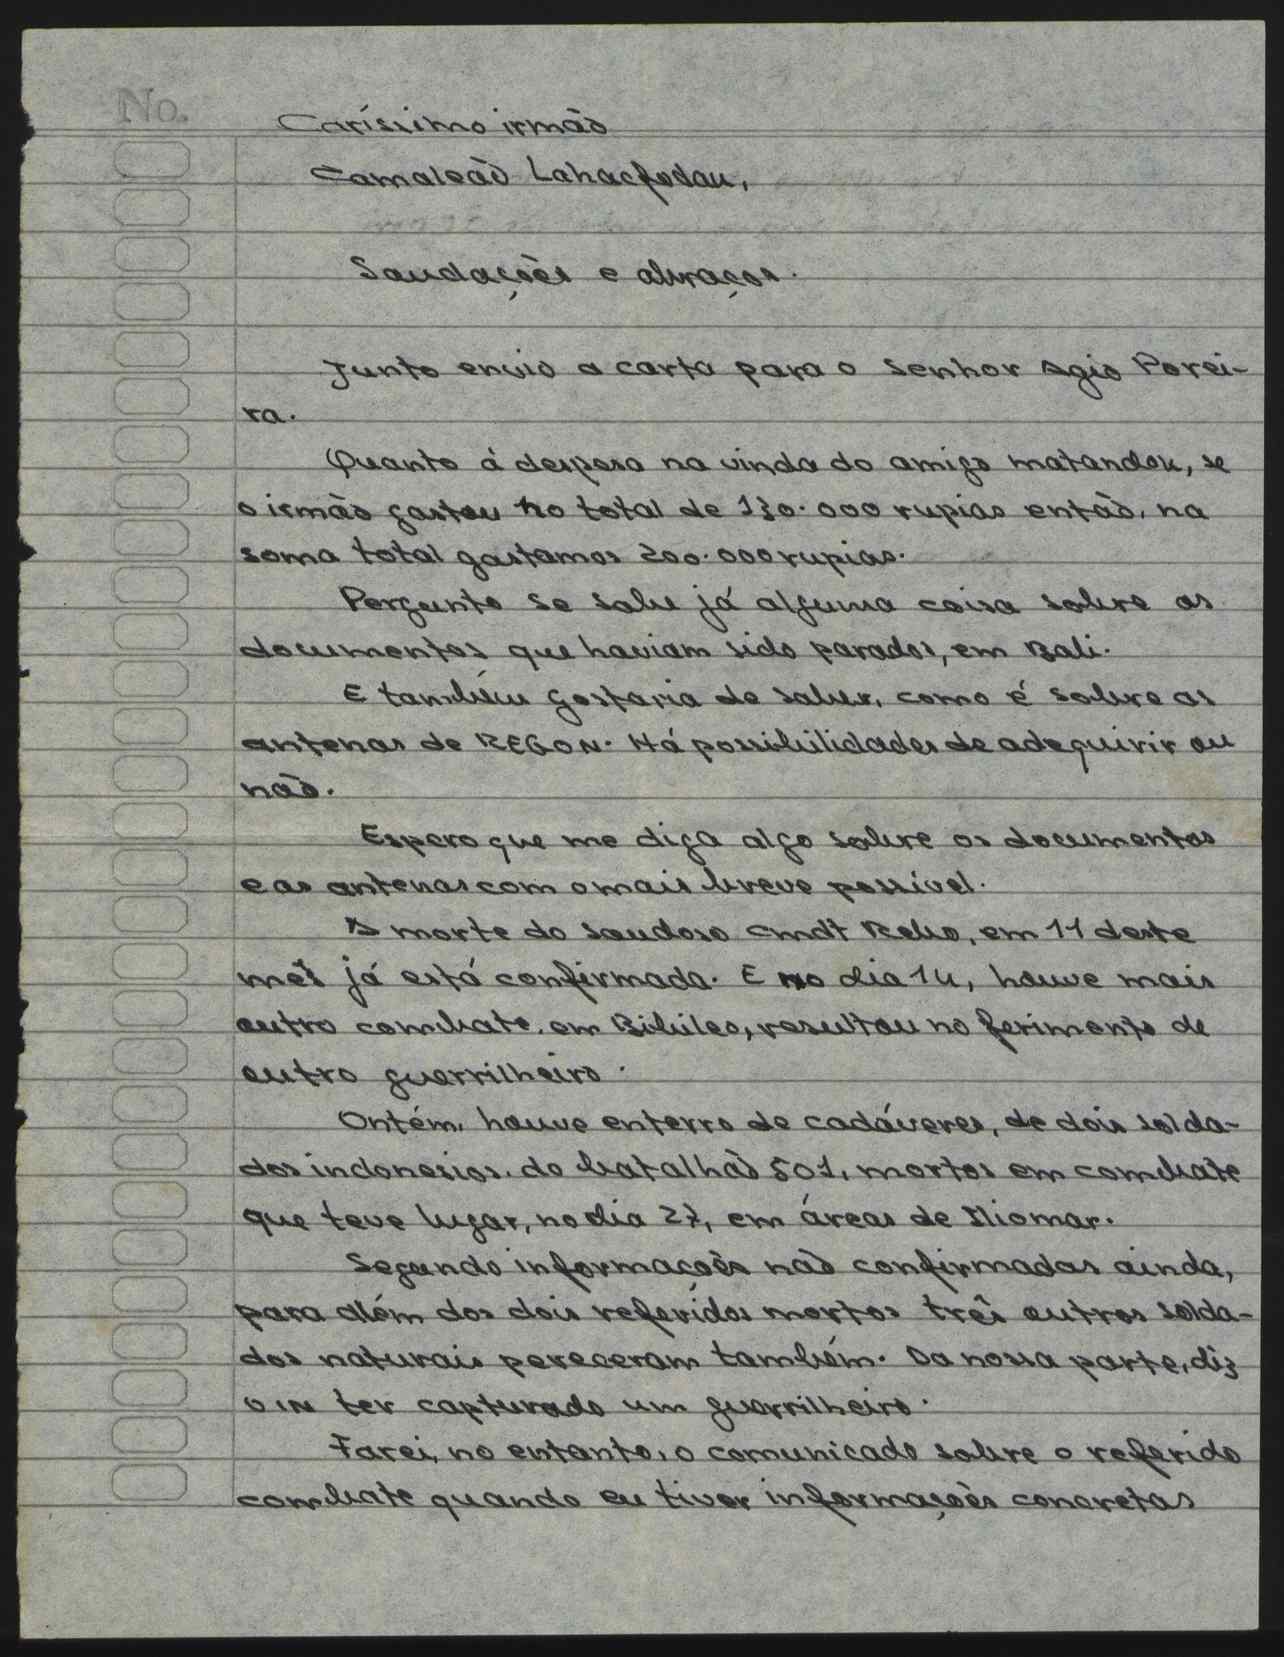 No.
Caríssimo irmão
Camaleão Lahacfodau,
Saudações e abraços.
Junto envio a carta para o senhor Agio Perei-
ra.
Quanto á despesa na vinda do amigo matandok, se
o irmão gastou no total de 130.000 rupias então, na
soma total gastamos 200.000 rupias.
Pergunto se sabe já alguma coisa sobre os
documentos que haviam sido parados, em Bali.
E também gostaria de saber, como é sobre as
antenas de REGON. Há possibilidades de adequirir ou
não.
Espero que me diga algo sobre os documentos
e as antenas com o mais breve possível.
A morte do saudoso cmdt Reko, em 11 deste
mês já está confirmada. E no dia 14, houve mais
outro combate, em Bibileo, resultou no ferimento de
outro guerrilheiro.
Ontém, houve enterro de cadáveres, de dois solda-
dos indonesios, do batalhão 501, mortos em combate
que teve lugar, no dia 27, em áreas de Iliomar.
Segundo informações não confirmadas ainda,
para além dos dois referidos mortos três outros solda-
dos naturais pereceram também. Da nossa parte, diz
o in ter capturado um guerrilheiro.
Farei, no entanto, o comunicado sobre o referido
combate quando eu tiver informações concretas